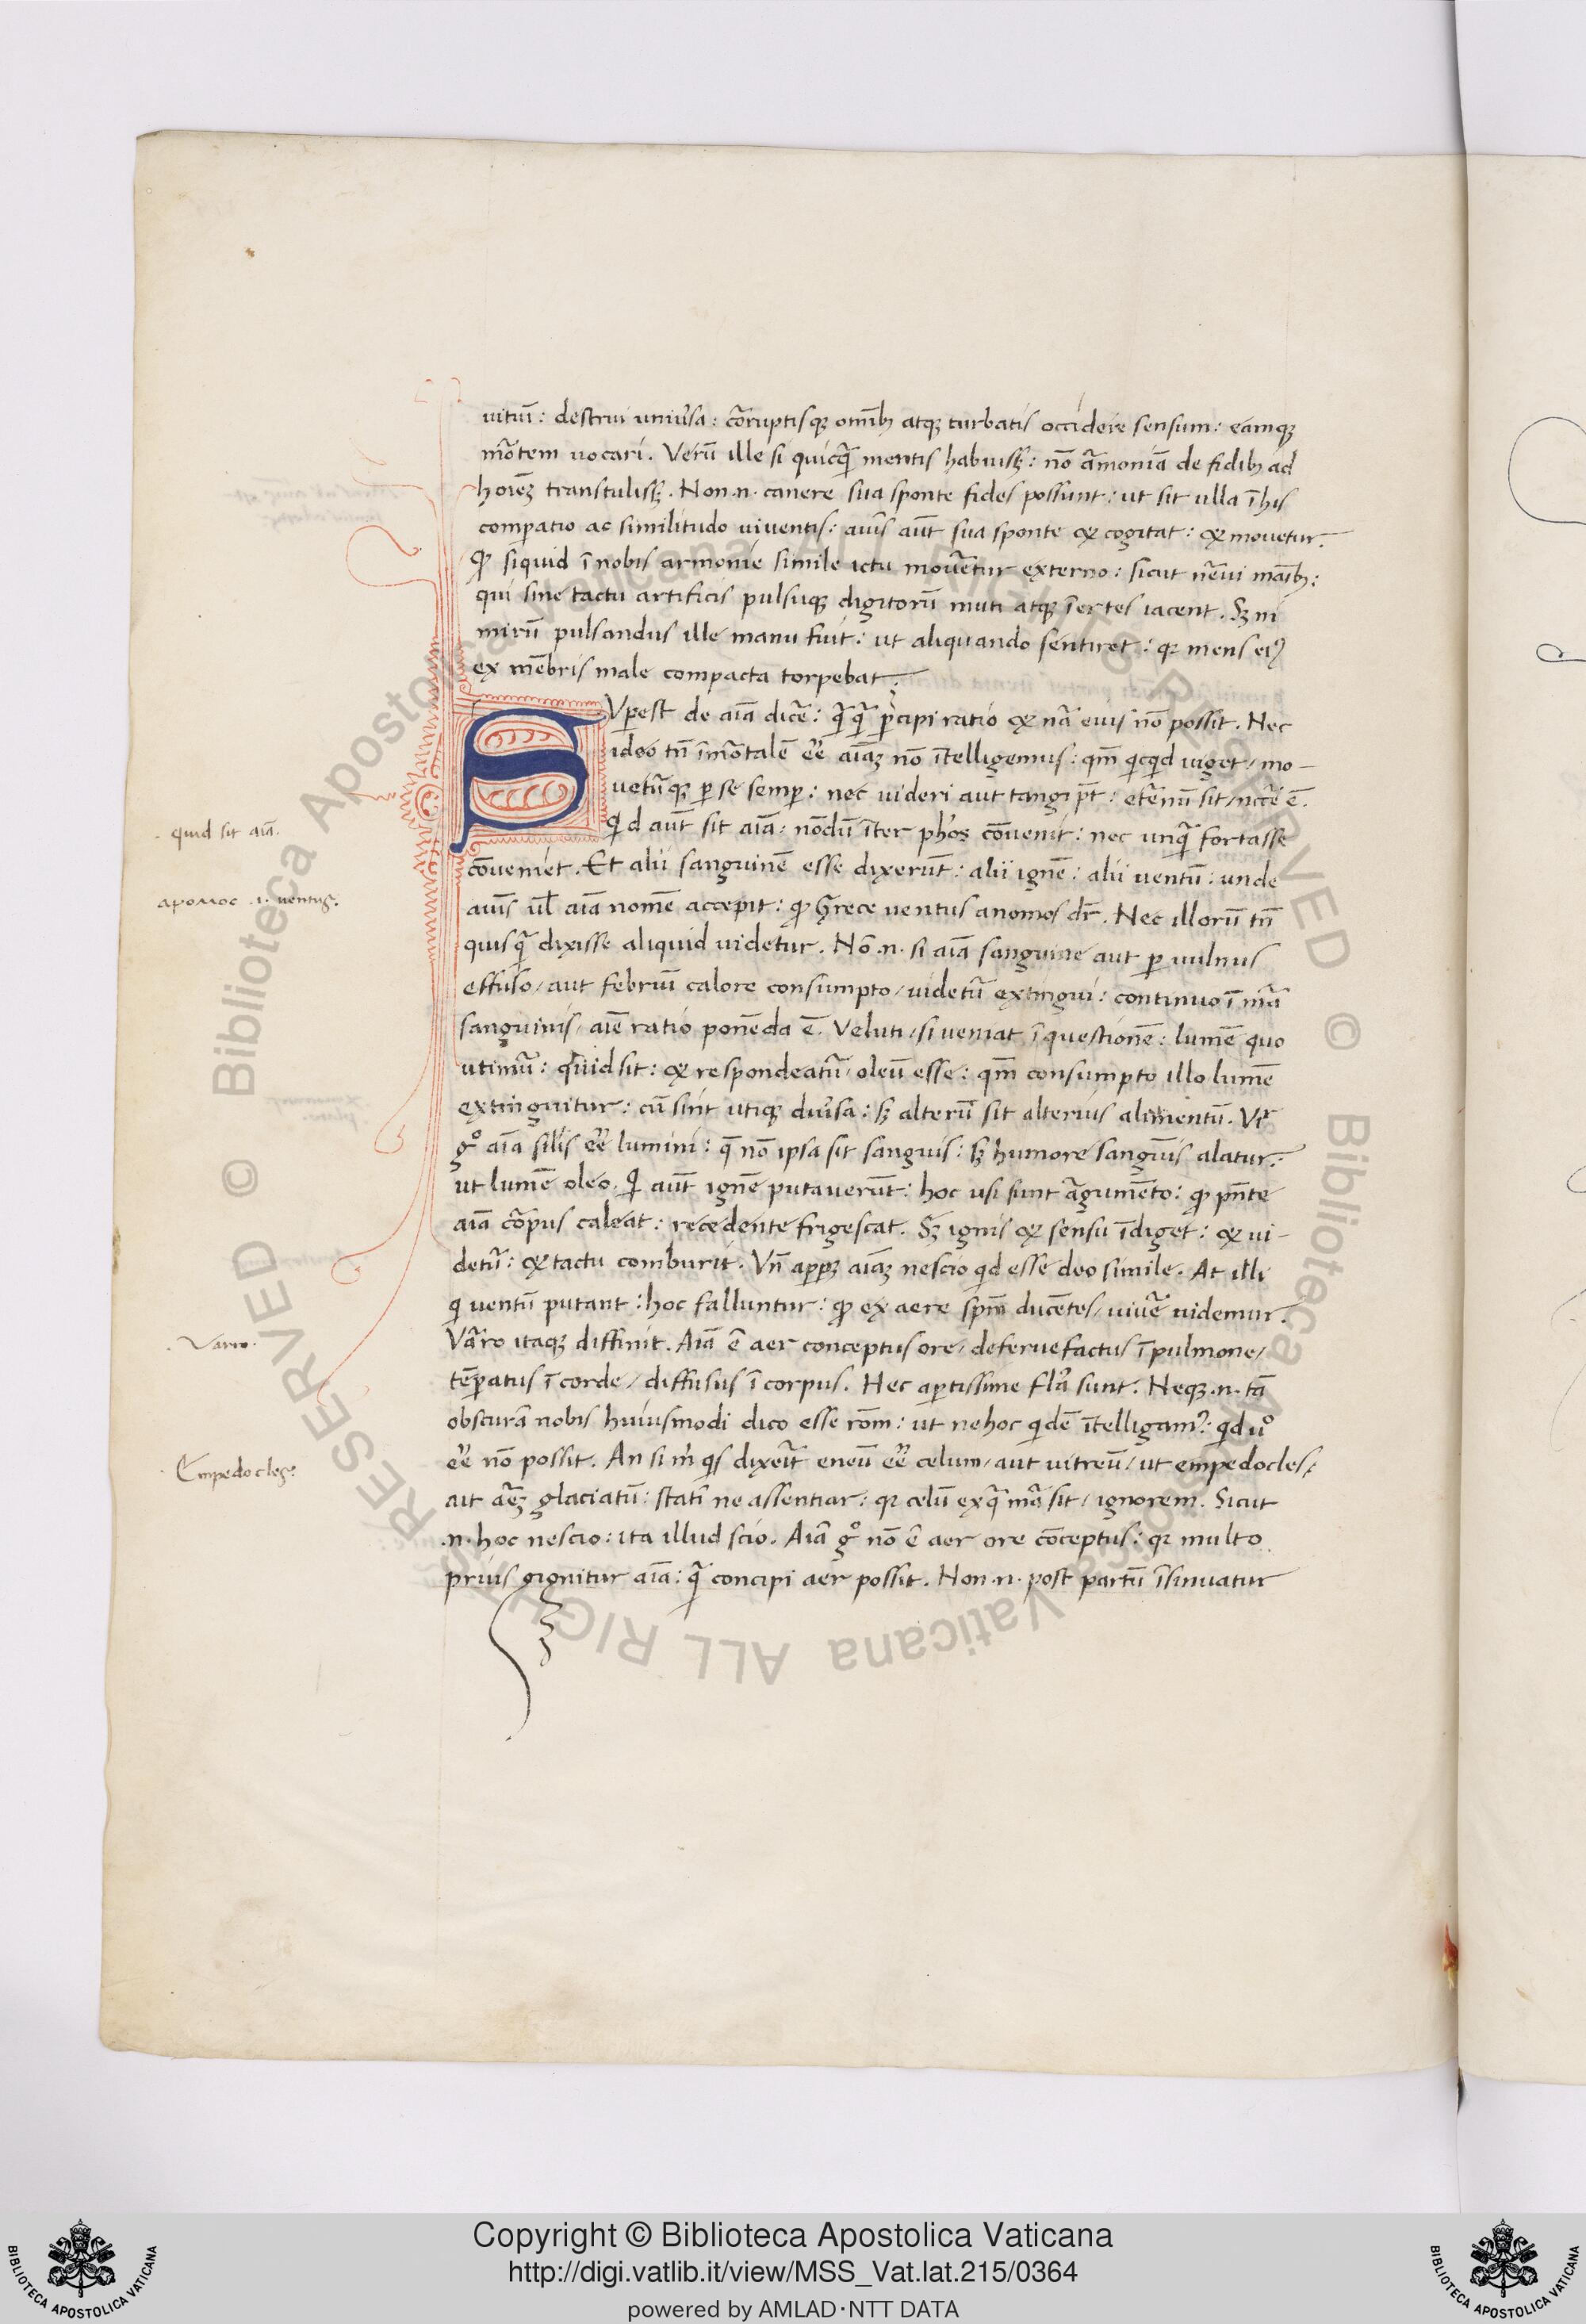 uitiū: destrui uniu̓sa: cōruptisqꝫ omībꝫ atqꝫ turbatis occidere sensum: eamqꝫ
mōtem uocari. Verū ille si quicq̄ mentis habuissꝫ: nō āmoniā de fidibꝫ ad
hoīeꝫ transtulissꝫ. Non .n. canere sua sponte fides possunt: ut sit ulla ī his
comꝑatio ac similitudo uiuentis: auīs aūt sua sponte & cogitat: & mouetur.
Qꝫ siquid ī nobis armonie simile ictu mouētur externo: sicut nēui māibꝫ:
qui sine tactu artificis pulsuqꝫ digitorū muti atqꝫ īertes iacent. Sꝫ ni
mirū pulsandus ille manu fuit: ut aliquando sentiret: qꝛ mens eiꝰ
ex mēbris male compacta torpebat.
SVꝑest de aīa dicē: q̄q̄ p̄cipi ratio & nā eius nō possit. Nec
ideo tn̄ īmōtalē eē̓ aīaꝫ nō ītelligemus: qm̄ qicqid uiget / mo-
uetūqꝫ ꝑ se semꝑ: nec uideri aut tangi pt̄: etēnū sit / ncc̄e ē.
Qid aūt sit aīa: nōdū īter phōs cōuenit: nec unq̄ fortasse
cōueniet. Et alii sanguinē esse dixerūt: alii ignē: alii uentū: unde
auīs ul̄ aīa nomē accepit: qꝫ Grece uentus anomos dr̄. Nec illorū tn̄
quisq̄ dixisse aliquid uidetur. Nō .n. si aīa sanguine aut ꝑ uulnus
effuso / aut febriū calore consumpto / uidetū extingui: continuo ī mā
sanguinis / aīe ratio ponēda ē. Veluti / si ueniat ī questionē: lumē quo
utimū: quid sit: & respondeatū / oleū esse: qm̄ consumpto illo lumē
extinguitur: cū sint utiqꝫ diu̓sa: sꝫ alterū sit alterius alimentū. Vr̄
gͦ aīa sil̓is eē̓ lumini: q̄ nō ipsa sit sanguis: sꝫ humore sanguīs alatur:
ut lumē oleo. Qi aūt ignē putauerūt: hoc usi sunt āgumēto: qꝫ pn̄te
aīa cōpus caleat: recedente frigescat. Sꝫ ignis & sensu īdiget: & ui-
detū: & tactu comburit. Vn̄ apꝑꝫ aīaꝫ nescio qid esse deo simile. At illi
qi uentū putant: hoc falluntur: qꝫ ex aere spm̄ ducētes / uiuē uidemur.
Vārro itaqꝫ diffinit. Aīa ē aer conceptus ore / deferuefactus ī pulmone /
tēꝑatus ī corde / diffusus ī corpus. Hec aꝑtissime fl̄a sunt. Neqꝫ .n. tā
obscurā nobis huiusmodi dico esse rōm: ut ne hoc qidē ītelligamꝰ: qid uͦ
eē̓ nō possit. An si m̓ qs dixeīt eneū eē̓ celum / aut uitreū / ut empedocles /
ait āeꝫ glaciatū: statī ne assentiar: qꝛ celū ex q̄ mā sit / ignorem. Sicut
.n. hoc nescio: ita illud scio. Aīa gͦ nō ē aer ore cōceptus: qꝛ multo
prius gignitur aīa: q̄ concipi aer possit. Non .n. post partū īsinuatur
. quid sit aīa.
αρομος .i. uentus.
. Varro.
. Empedocles.
RESERVED © Biblioteca Apostolica Vaticana ALL RIGHTS RESERVED © Biblioteca Apostolica Vaticana ALL RIGHTS
Copyright © Biblioteca Apostolica Vaticana
http://digi.vatlib.it/view/MSS_Vat.lat.215/0364
powered by AMLAD·NTT DATA
BIBLIOTECA APOSTOLICA VATICANA
BIBLIOTECA APOSTOLICA VATICANA